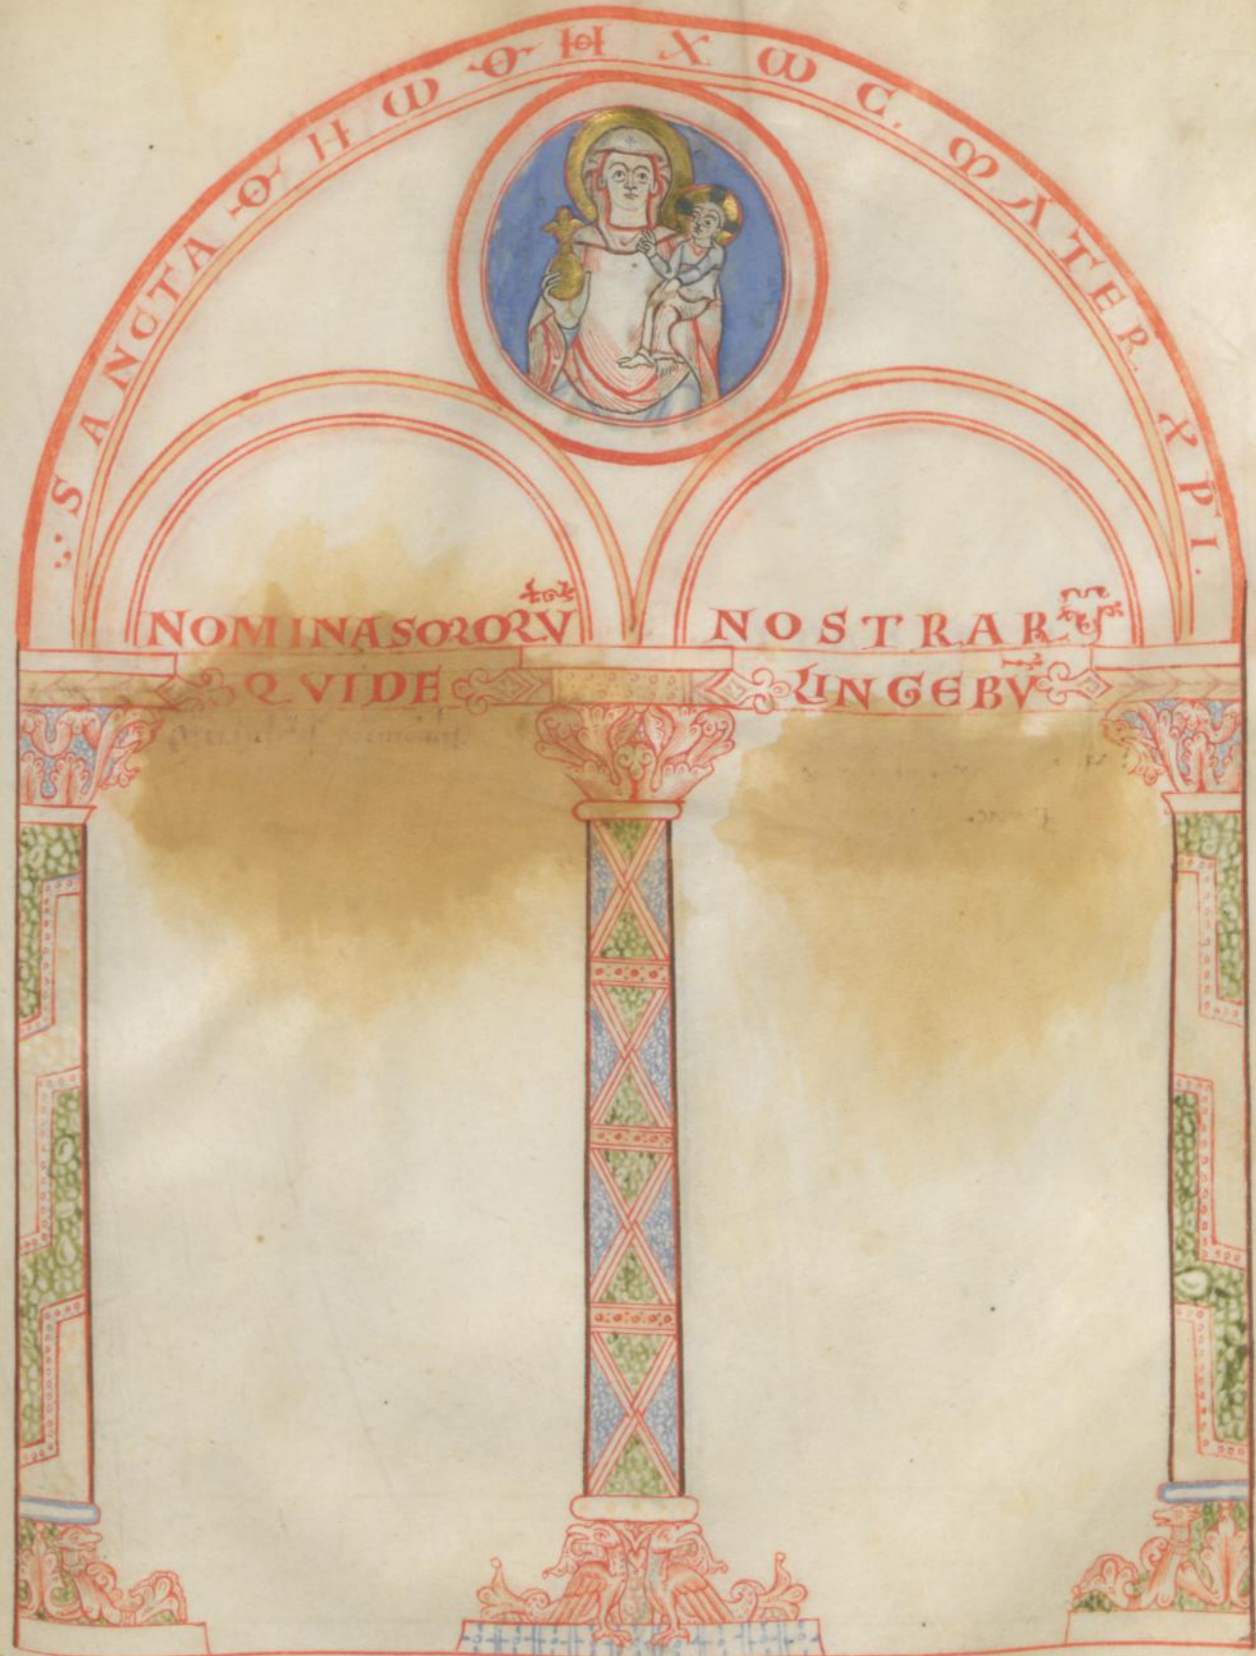 SANCTA ΘHωΘHXωC. MATER XPI.
NOMINA SORORV NOSTRAR
QVIDE LINGEBV